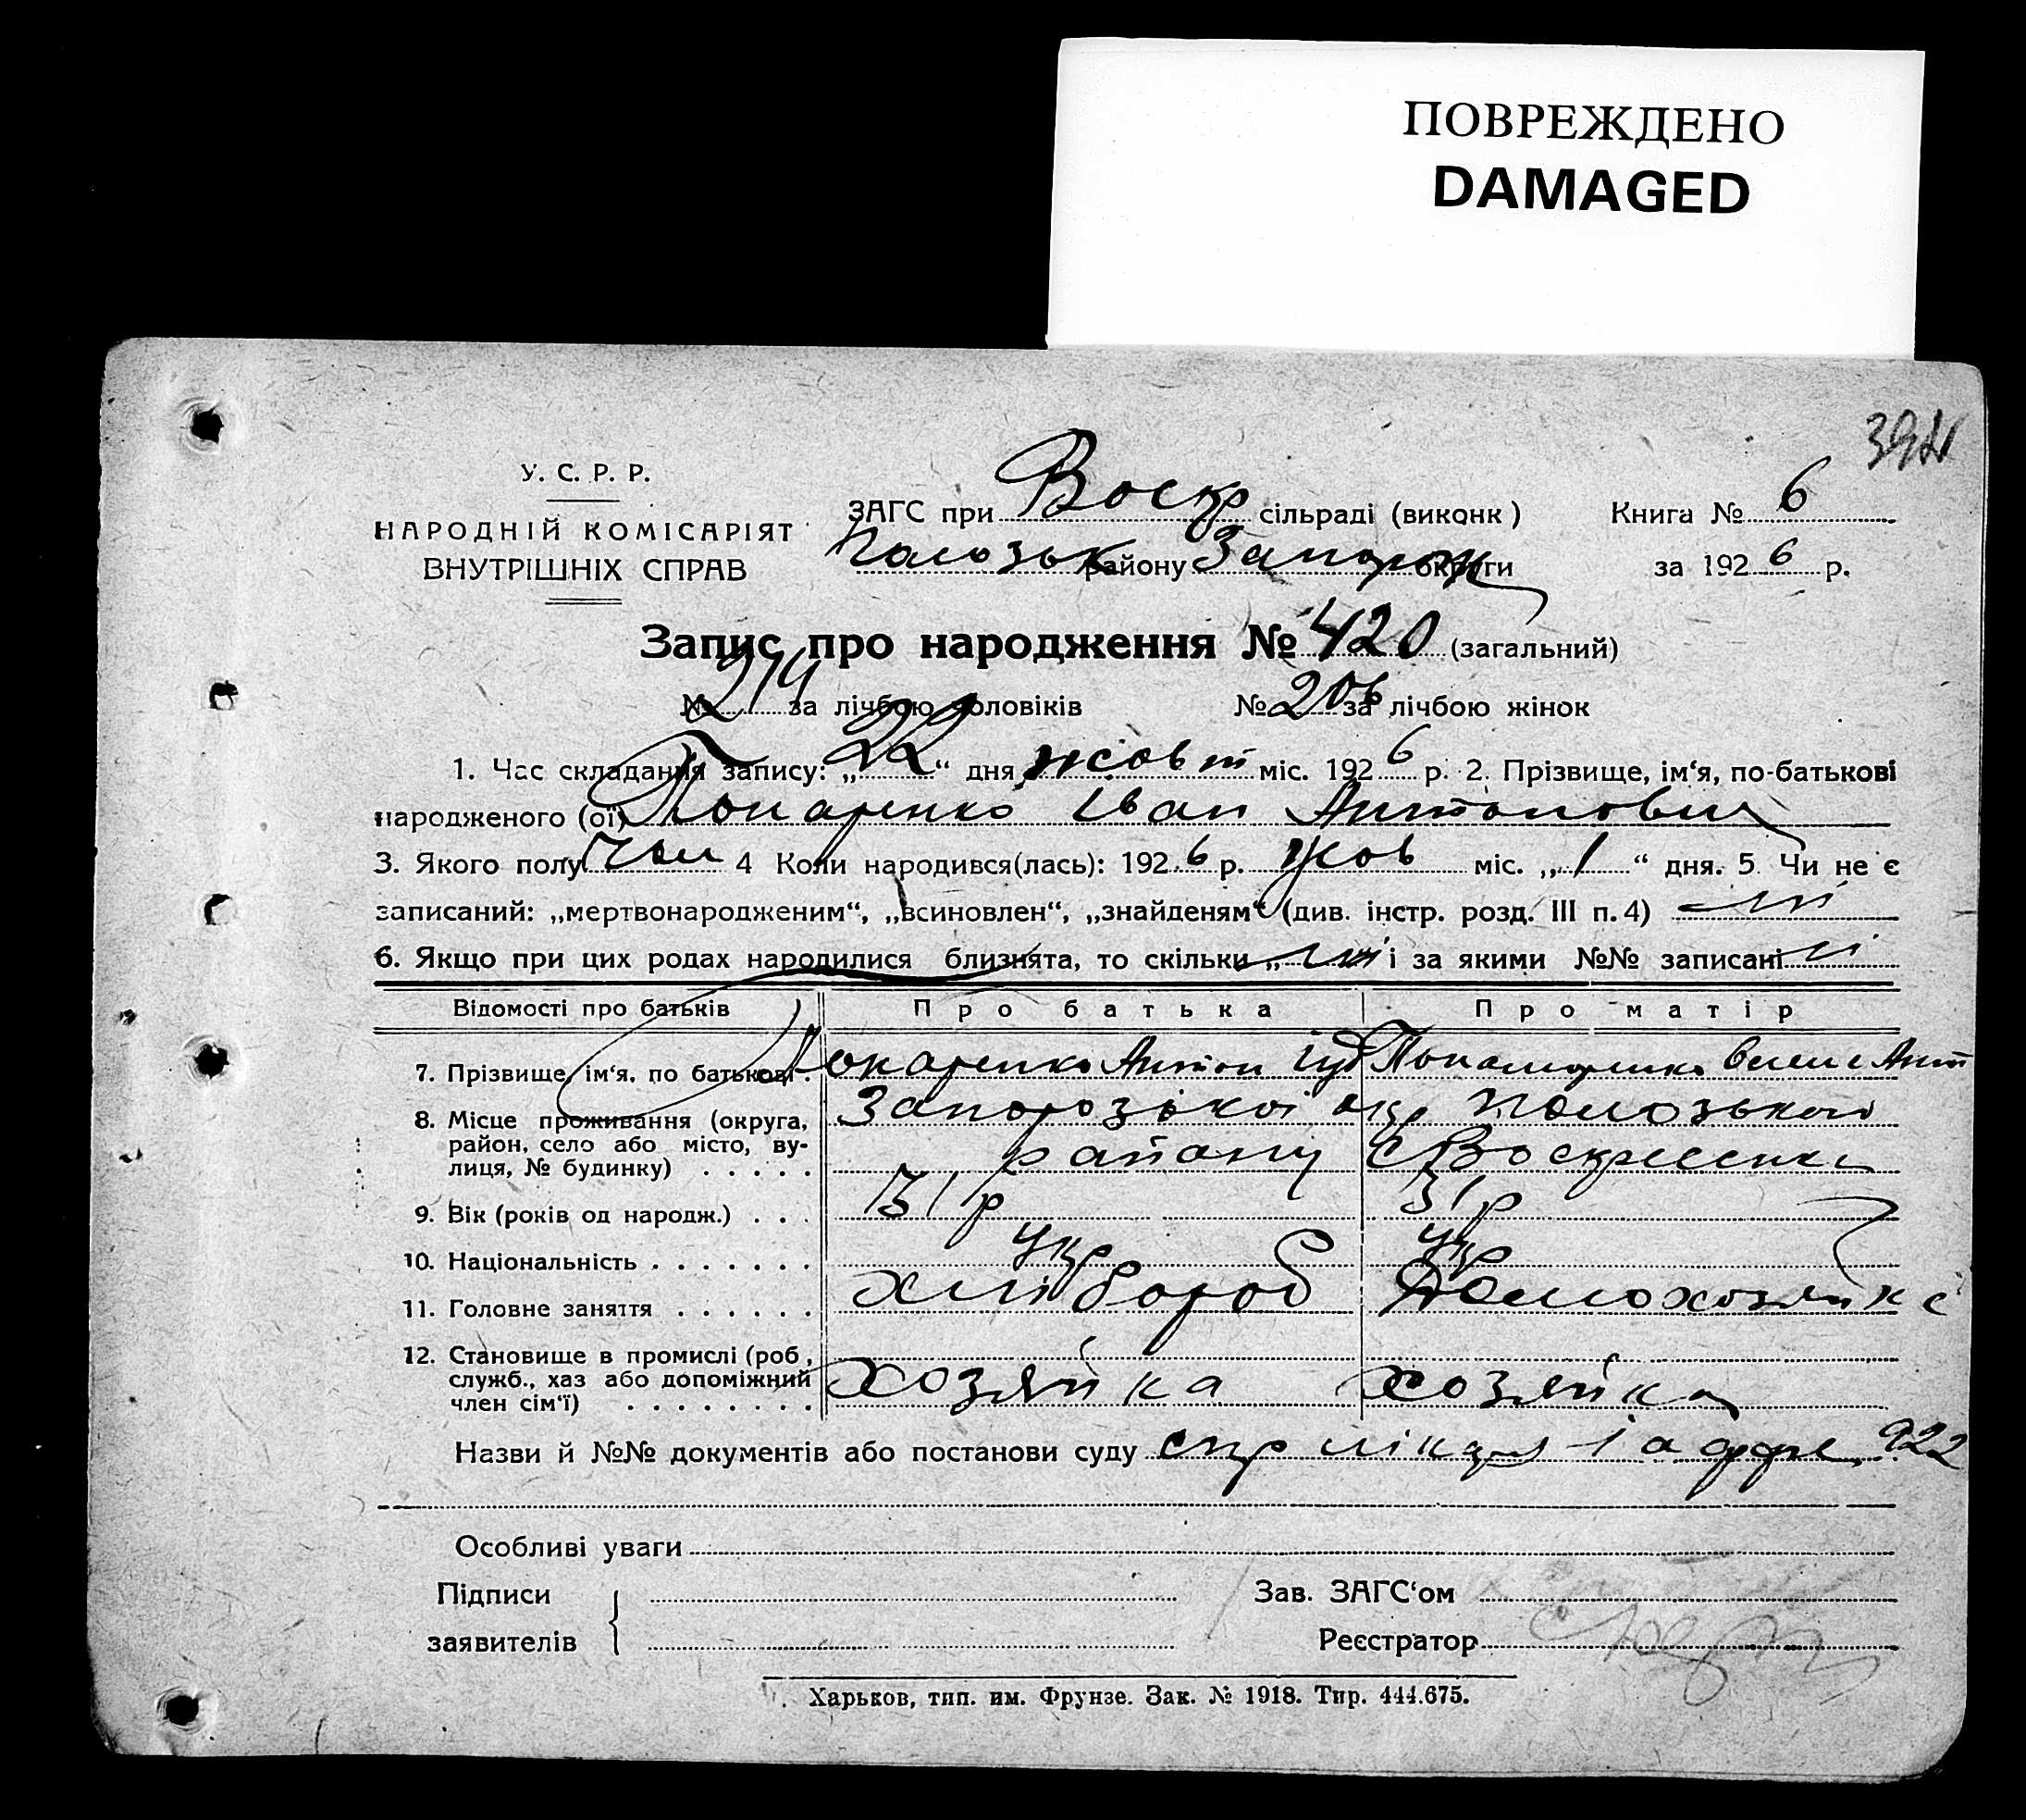 ПОВРЕЖДЕНО
DAMAGED
У. С. Р. Р.
НАРОДНІЙ КОМІСАРІЯТ
ВНУТРІШНІХ СПРАВ
ЗАГС при Воскр сільраді (виконк)
Полозьк району Запорож округи
Книга № 6
за 1926 р.
Запис про народження № 420 (загальний)
№ 214 за лічбою чоловіків № 206 за лічбою жінок
1. Час складання запису: „22“ дня жовт міс. 1926 р. 2. Прізвище, ім‘я, по-батькові
народженого (ої) Іван Антонович
3. Якого полу чол 4 Коли народився(лась): 1926 р. жов міс. „1“ дня. 5. Чи не є
записаний: „мертвонародженим“, „всиновлен“, „знайденям“ (див. інстр. розд. III п. 4) ні
6. Якщо при цих родах народилися близнята, то скільки „ і за якими №№ записані ні
Відомості про батьків Про батька Про матір
7. Прізвище, ім‘я, по батькові. Антон
8. Місце проживання (округа, Запорозької окр Полозького
район, село або місто, ву- району с Воскресенка
лиця, № будинку)
9. Вік (років од народж.) 31 р 31 р
10. Національність укр укр
11. Головне заняття хлібороб Домохозяйка
12. Становище в промислі (роб., служб., хаз або допоміжний член сім‘ї) хозяйка хозяйка
Назви й №№ документів або постанови суду 922
Особливі уваги
Підписи
заявителів
Зав. ЗАГС‘ом
Реєстратор
Харьков, тип. им. Фрунзе. Зак. № 1918. Тир. 444.675.